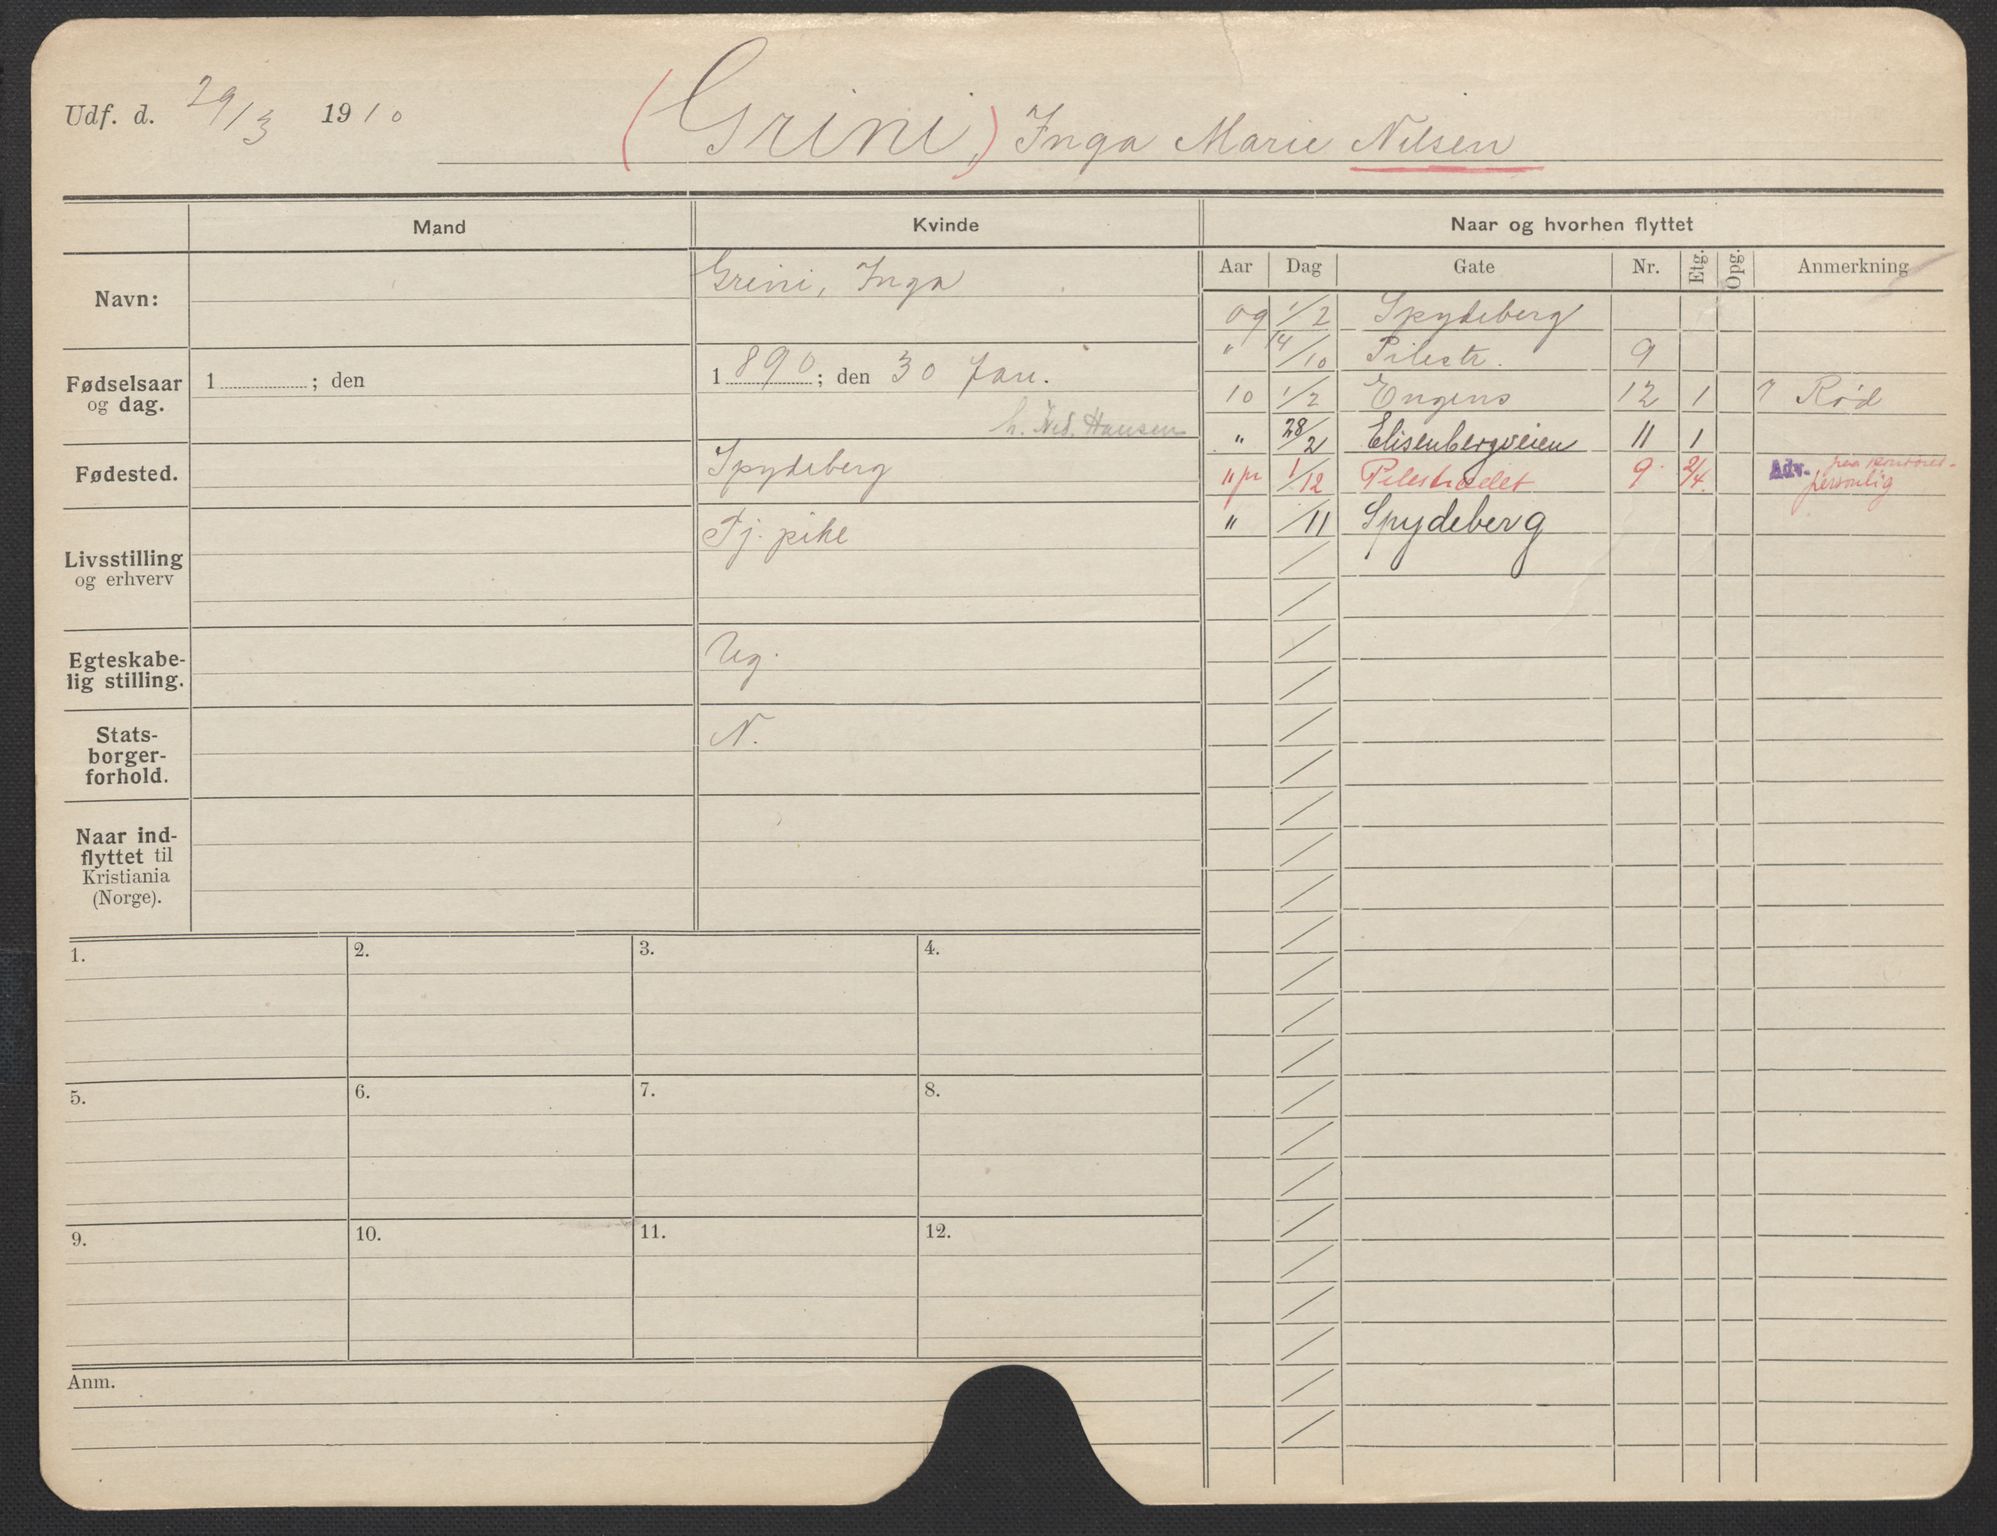 Udf. d. 29/3 1910
(Grini,) Inga Marie Nilsen
Mand
Kvinde
Naar og hvorhen flyttet
Navn:
Grini, Inga
Fødselsaar og dag.
1 ; den
1890; den 30 Jan.
Hansen
Fødested.
Spydeberg
Livsstilling og erhverv
Tj. pike
Egteskabe-
lig stilling.
Ug.
Stats-
borger-
forhold.
N.
Naar ind-
flyttet til
Kristiania
(Norge).
Aar Dag Gate Nr. Etg. Opg. Anmerkning
09 1/2 Spydeberg
" 14/10 Pilestr. 9
10 1/2 Engens 12 1 Rød
" 28/2 Elisenbergveien 11 1
" pr 1/12 Pilestrædet 9 2/4 Adv. paa kontoret personlig
" /11 Spydeberg
1. 2. 3. 4.
5. 6. 7. 8.
9. 10. 11. 12.
Anm.